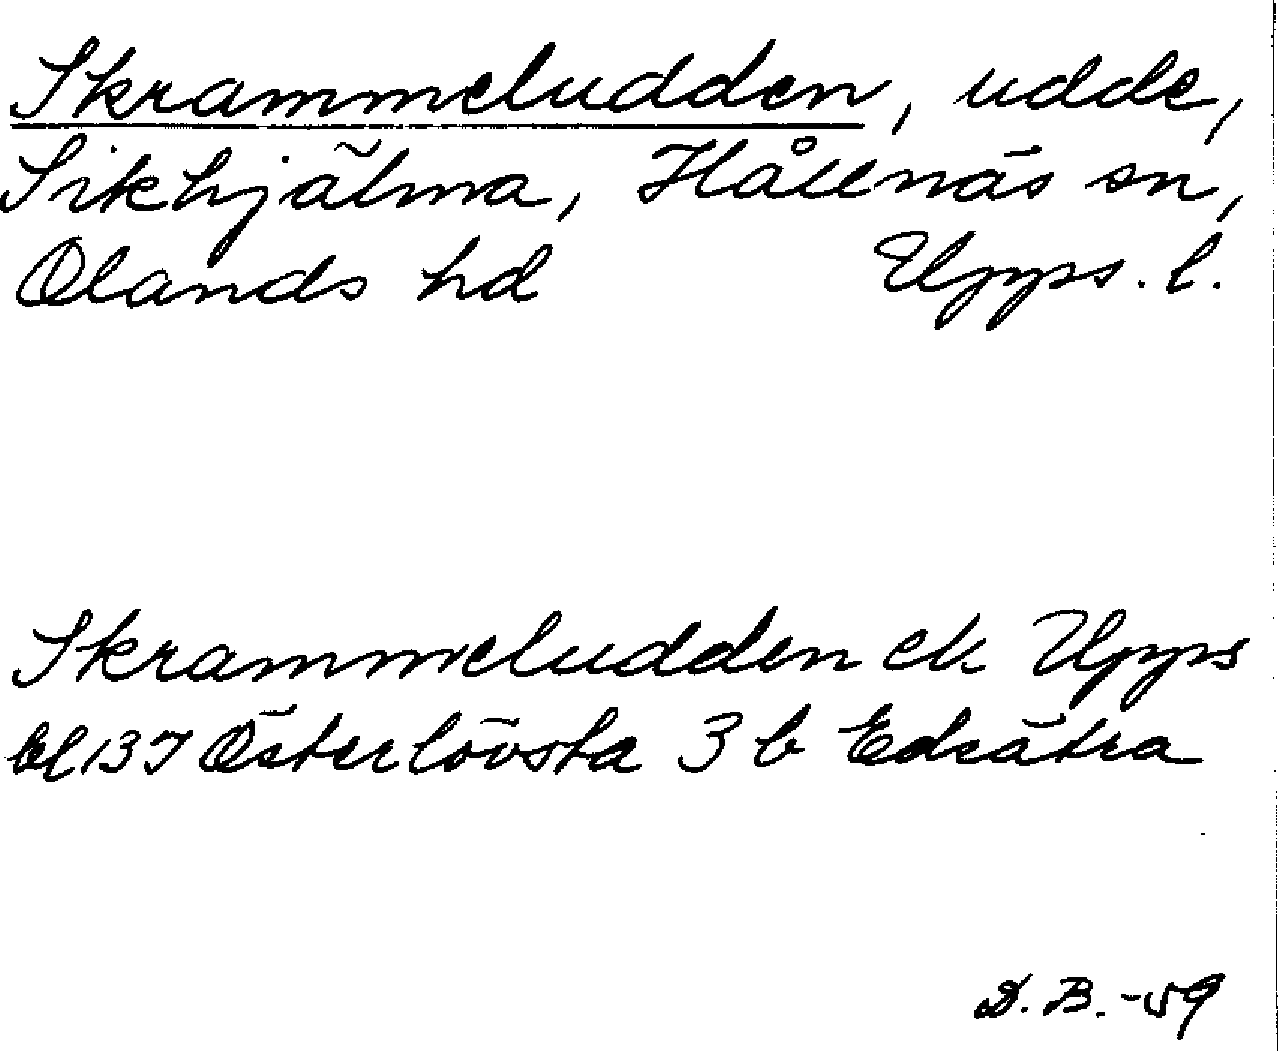 Skrammeludden, udde,
Sikhjälma, Hållnäs sn,
Olands hd Upps. l.
Skrammeludden ek Upps
bl 137 Österlövsta 3 b Edsätra
D.B. -59